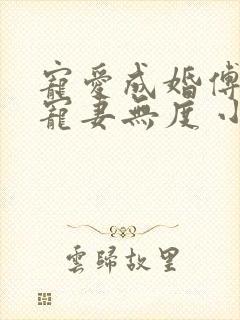 寵愛成婚傅
寵妻無度小
雲歸故里